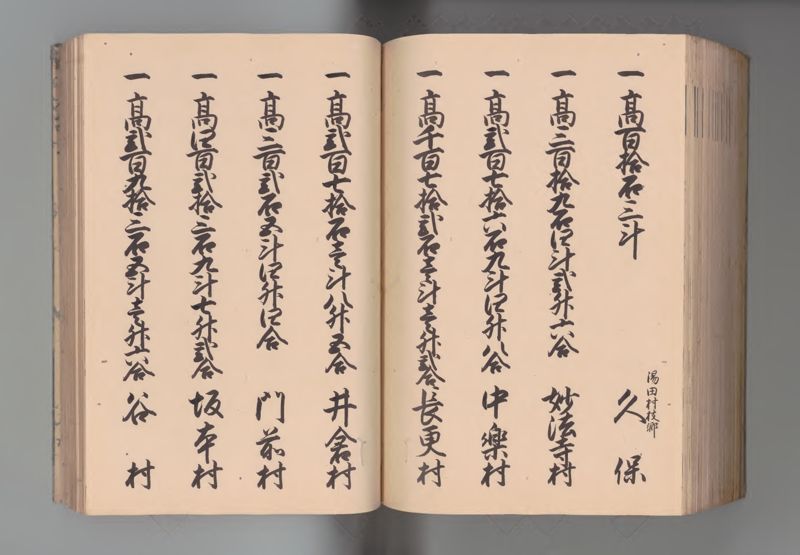 一 高百拾石三斗 湯田村枝郷 久保
一 高三百拾九石四斗弐升六合 妙法寺村
一 高弐百七拾六石九斗四升八合 中樂村
一 高千百七拾弐石壱斗壱升弐合 長更村
一 高弐百七拾石壱斗八升五合 井倉村
一 高三百弐石五斗四升四合 門前村
一 高四百弐拾三石九斗七升弐合 坂本村
一 高弐百九拾三石五斗壱升六合 谷村